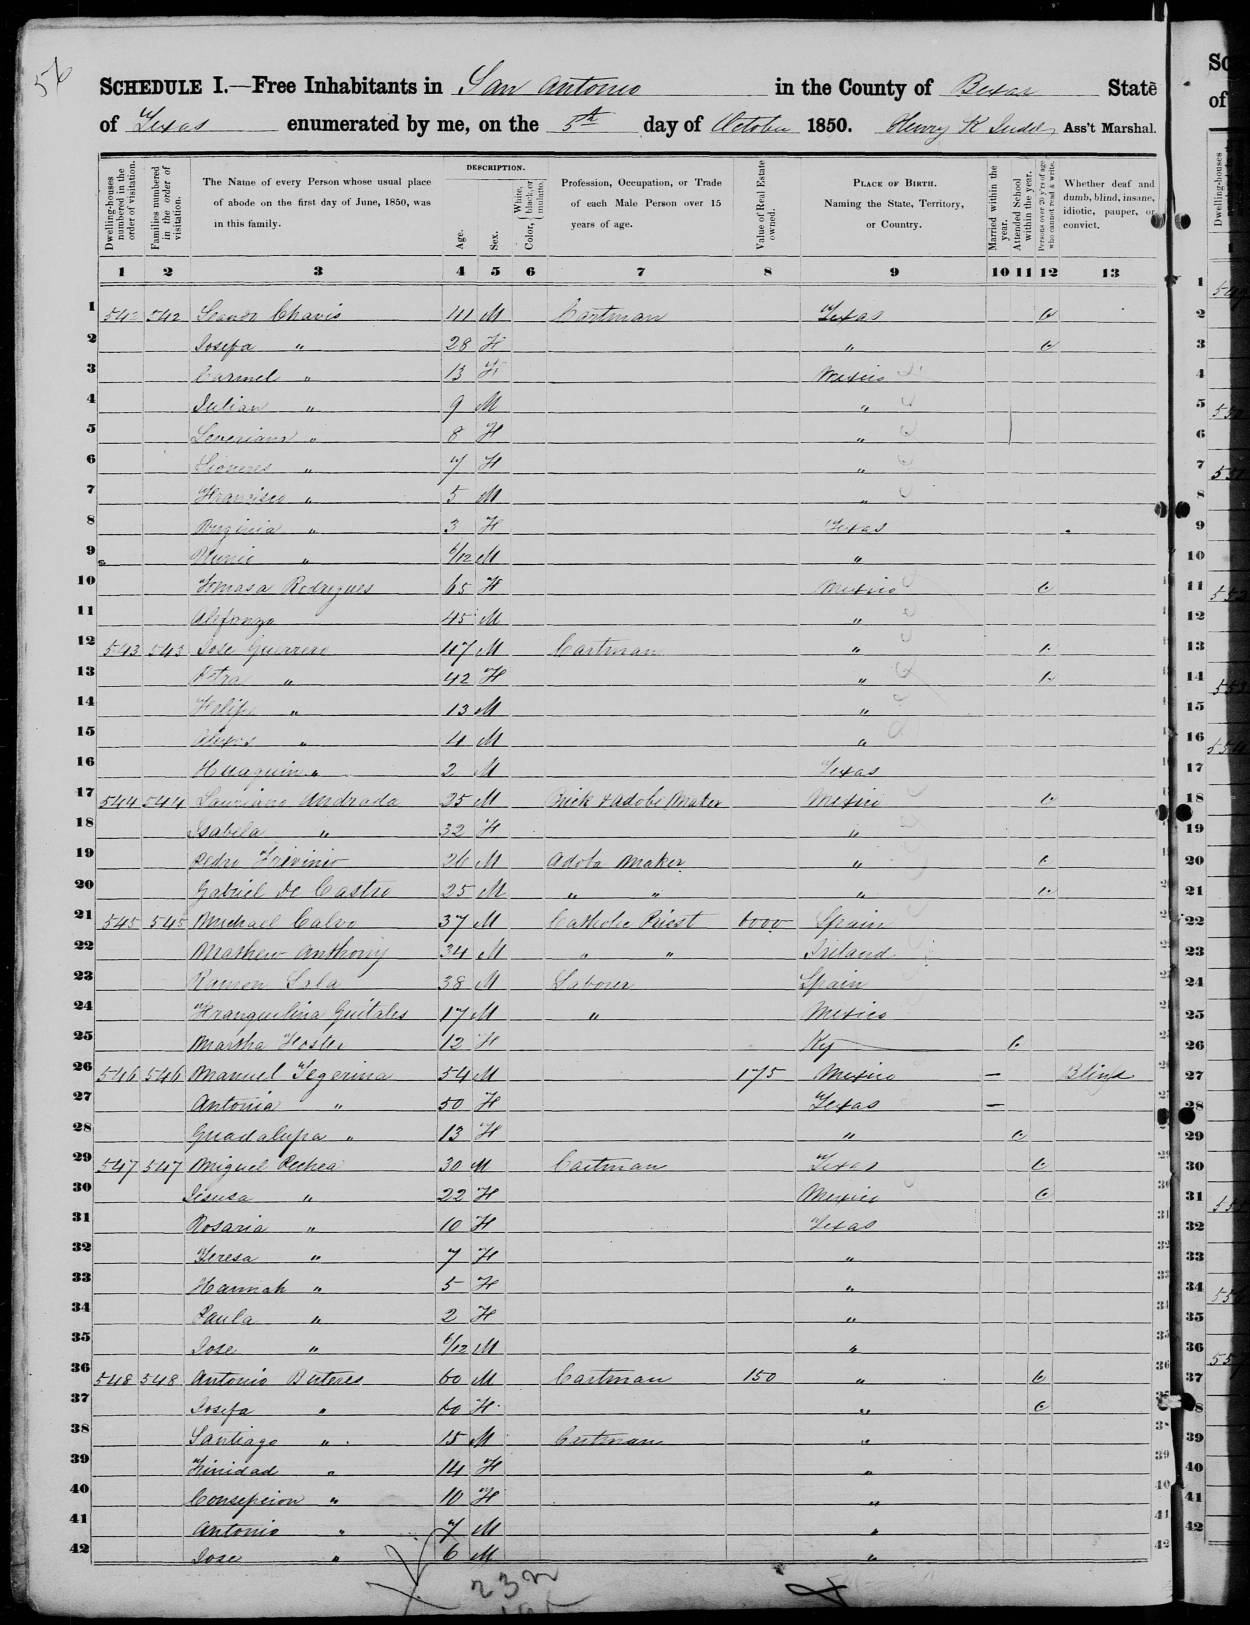 56
SCHEDULE I.—Free Inhabitants in San Antonio in the County of Bexar State
of Texas enumerated by me, on the 5th day of October 1850. Henry K Ass't Marshal.
Dwelling-houses numbered in the order of visitation.
Families numbered in the order of visitation.
The Name of every Person whose usual place of abode on the first day of June, 1850, was in this family.
DESCRIPTION.
Age.
Sex.
Color, White, black, or mulatto.
Profession, Occupation, or Trade of each Male Person over 15 years of age.
Value of Real Estate owned.
PLACE OF BIRTH. Naming the State, Territory, or Country.
Married within the year.
Attended School within the year.
Persons over 20 y'rs of age who cannot read & write.
Whether deaf and dumb, blind, insane, idiotic, pauper, or convict.
1 2 3 4 5 6 7 8 9 10 11 12 13
1 542 542 Chavis 41 M Cartman Texas
2 Josefa " 28 F "
3 Carmel " 13 F Mexico
4 Julian " 9 M "
5 " 8 F "
6 " 7 F "
7 Francisco " 5 M "
8 Virginia " 3 F Texas
9 " 6/12 M "
10 Tomasa Rodrigues 65 F Mexico
11 Alifonzo 45 M "
12 543 543 Jose Guerrero 47 M Cartman "
13 Petra " 42 F "
14 Felipe " 13 M "
15 " 4 M "
16 Huaquin " 2 M Texas
17 544 544 Lauriano Andrada 25 M Brick & Adobe Maker Mexico
18 Isabela " 32 F "
19 Pedro Trivinio 26 M Adoba Maker "
20 Gabriel De Castro 25 M " " "
21 545 545 Michael Calvo 37 M Catholic Priest 6000 Spain
22 Mathew Anthony 34 M " " Ireland
23 Ramon Sala 38 M Laborer Spain
24 Franquelina 17 M " Mexico
25 Martha Hosler 12 F Ky
26 546 546 Manuel Tegerina 54 M 175 Mexico — Blind
27 Antonia " 50 F Texas —
28 Guadalupa " 13 F "
29 547 547 Miguel 30 M Cartman Texas
30 Jesusa " 22 F Mexico
31 Rosaria " 10 F Texas
32 Teresa " 7 F "
33 Hannah " 5 F "
34 Paula " 2 F "
35 Jose " 6/12 M "
36 548 548 Antonio 60 M Cartman 150 "
37 Josefa " 60 F "
38 Santiago " 15 M Cartman "
39 Trinidad " 14 F "
40 Consepcion " 10 F "
41 Antonio " 7 M "
42 Jose " 6 M "
232